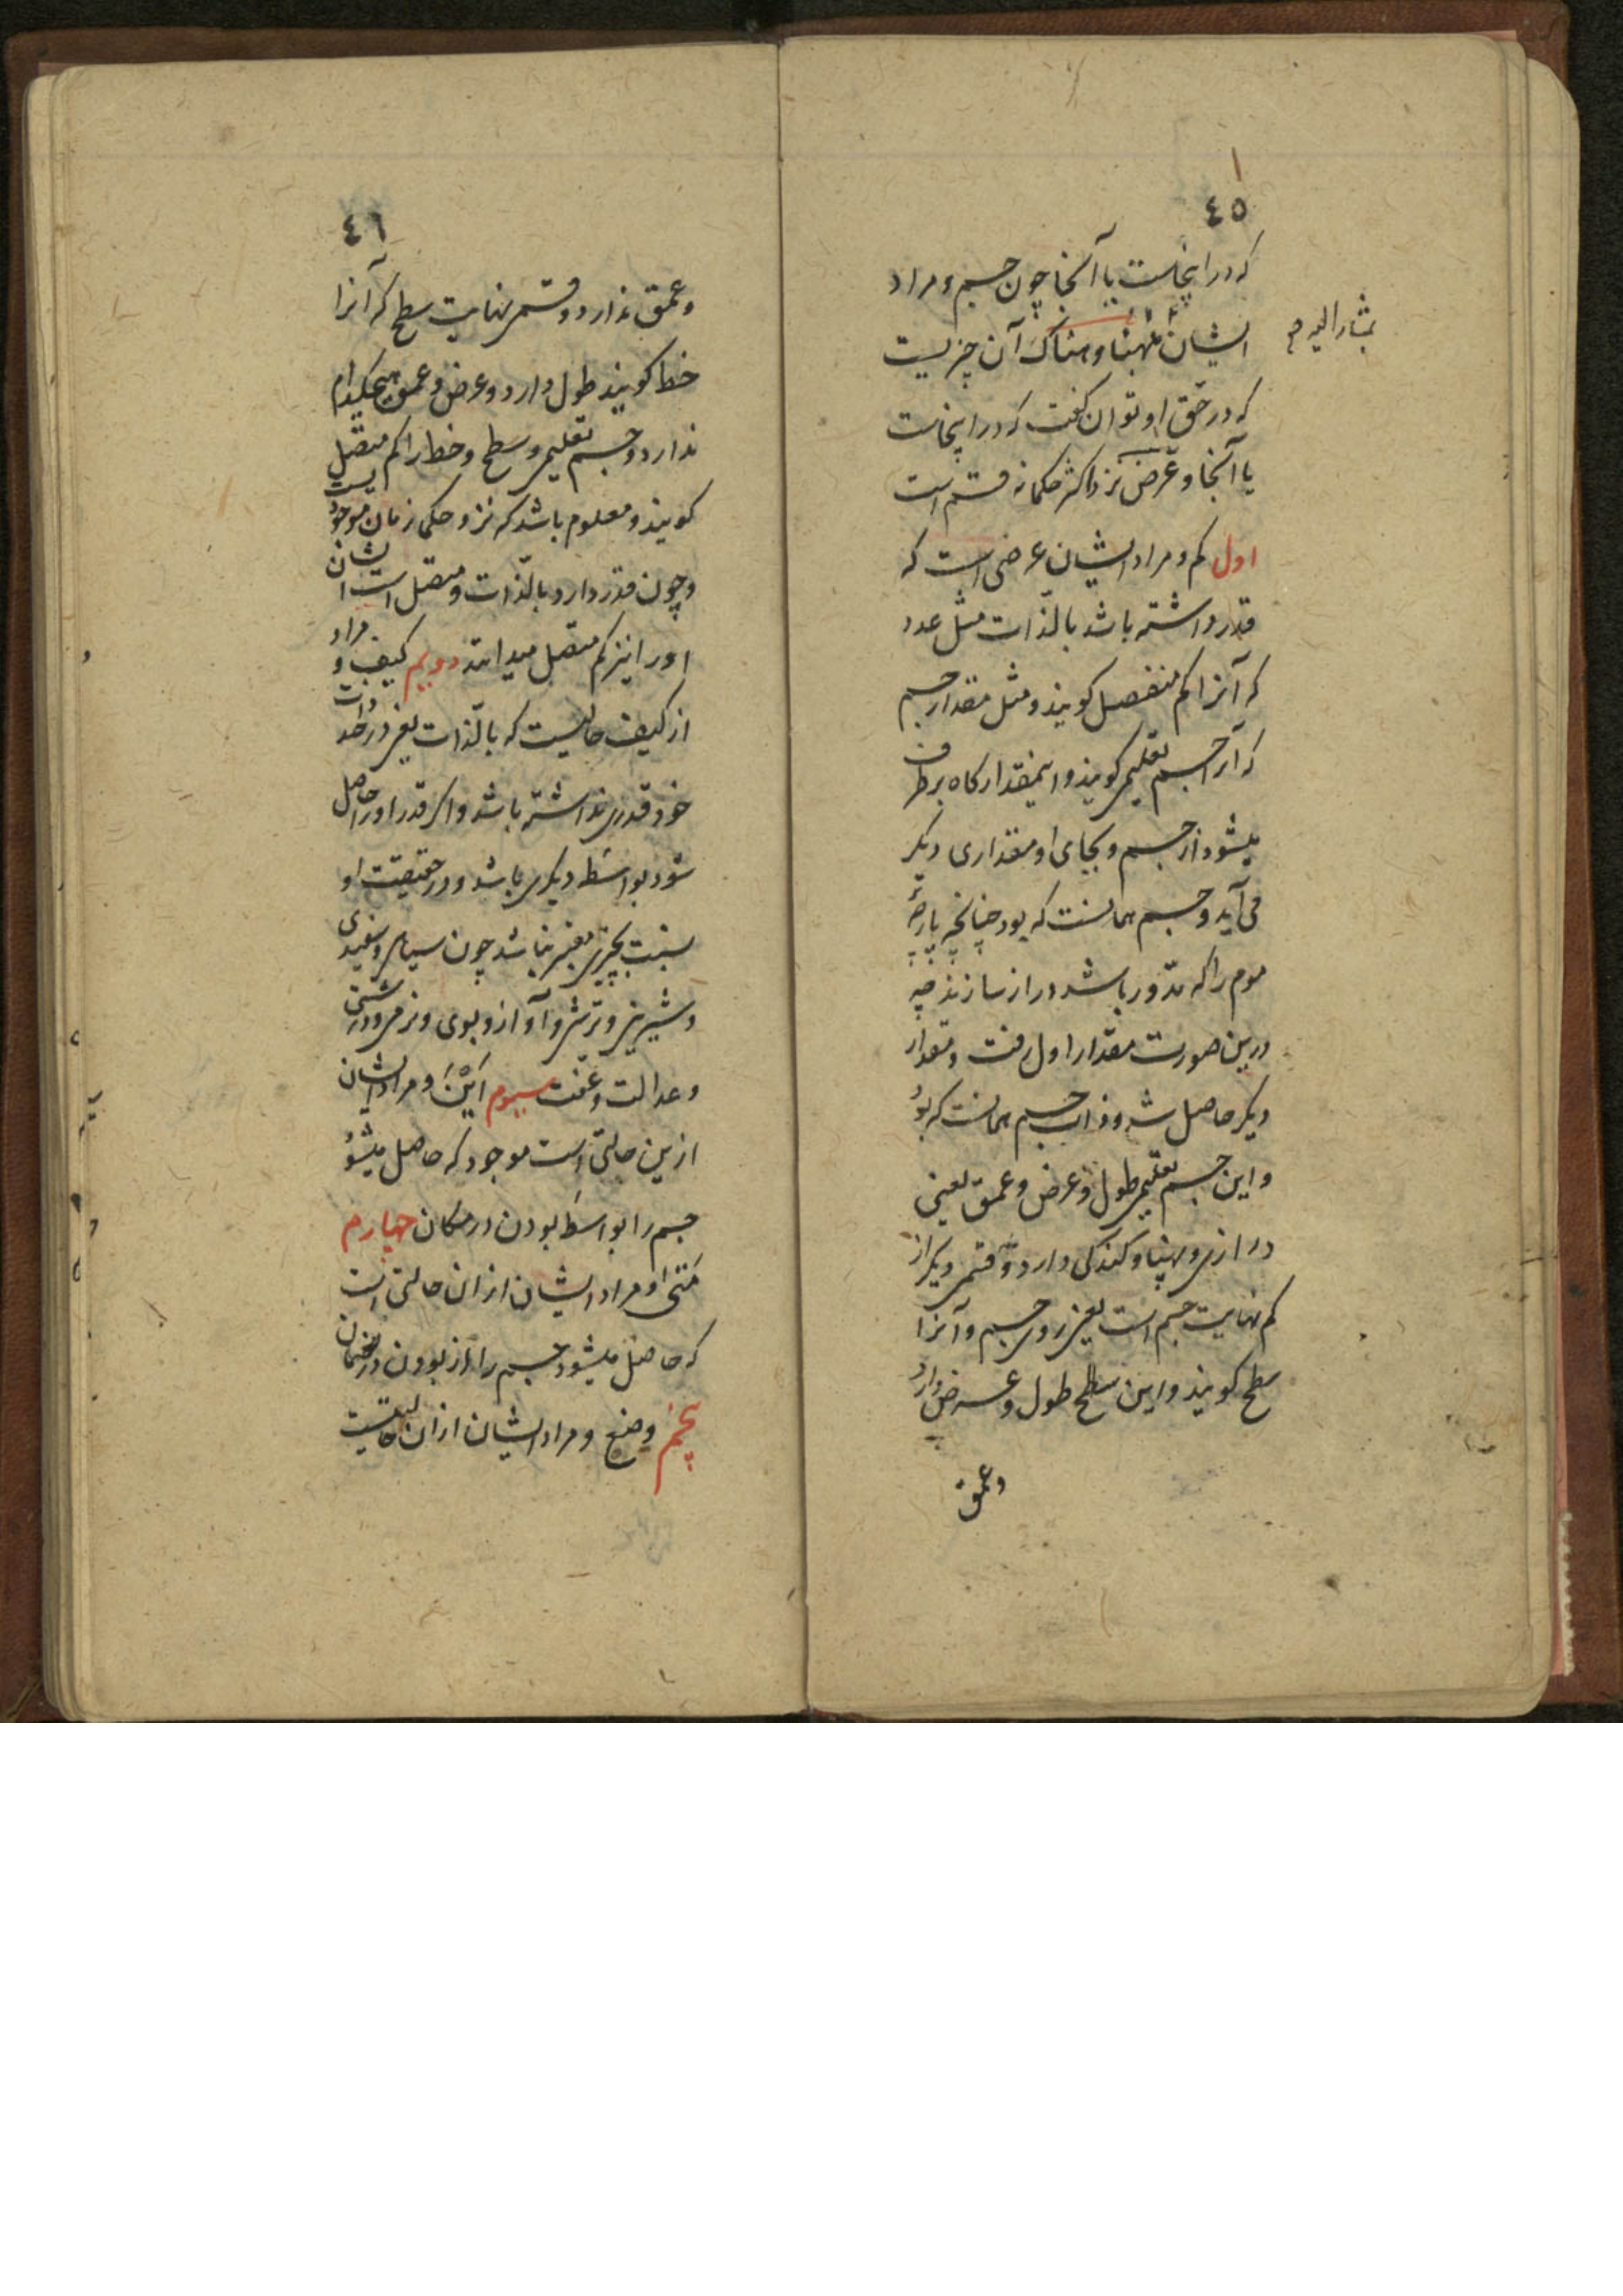 ٤٥
که در اینجاست یا آنجا چون جسم و مراد
ایشان بههنا و هناک آن چیزیست
بمشار الیه
که در حق او توان گفت که در اینجاست
یا آنجا و عرض نزد اکثر حکما نه قسم است
اول کم و مراد ایشان عرضی است که
قدر داشته باشد بالذات مثل عدد
که آنرا کم منفصل کویند و مثل مقدار جسم
که آنرا جسم تعلیمی کویند و اینمقدار کاه برطرف
میشود از جسم و بجای او مقداری دیکر
می آید و جسم همانست که بود چنانچه پارهٔ
موم را که مدور باشد دراز سازند چه
درین صورت مقدار اول رفت و مقدار
دیکر حاصل شد و ذات جسم همانست که بود
و این جسم تعلیمی طول و عرض و عمق یعنی
درازی و پهنا و کندکی دارد و قسمی دیکر از
کم نهایت جسم است یعنی روی جسم و آنرا
سطح کویند و این سطح طول و عرض دارد
و عمق
٤٦
و عمق ندارد و قسمی نهایت سطح که آنرا
خط کویند طول دارد و عرض و عمق هیچکدام
ندارد و جسم تعلیمی و سطح و خط را کم متصل
کویند و معلوم باشد که نزد حکما زمان موجودیست
و چون قدر دارد بالذات و متصل است ایشان
او را نیز کم متصل میدانند دویم کیف و مراد
از کیف حالیست که بالذات یعنی در حد ذات
خود قدری نداشته باشد و اکر قدر او را حاصل
شود بواسطه دیکری باشد و در حقیقت او
نسبت بچیزی معتبر نباشد چون سیاهی و سفیدی
و شیرینی و ترشی و آواز و بوی و نرمی و درشتی
و عدالت و عفت سیوم این و مراد ایشان
ازین حالتی است موجود که حاصل میشود
جسم را بواسطه بودن در مکان چهارم
متی و مراد ایشان از ان حالتی است
که حاصل میشود جسم را از بودن در زمان
پنجم وضع و مراد ایشان از ان حالتیست